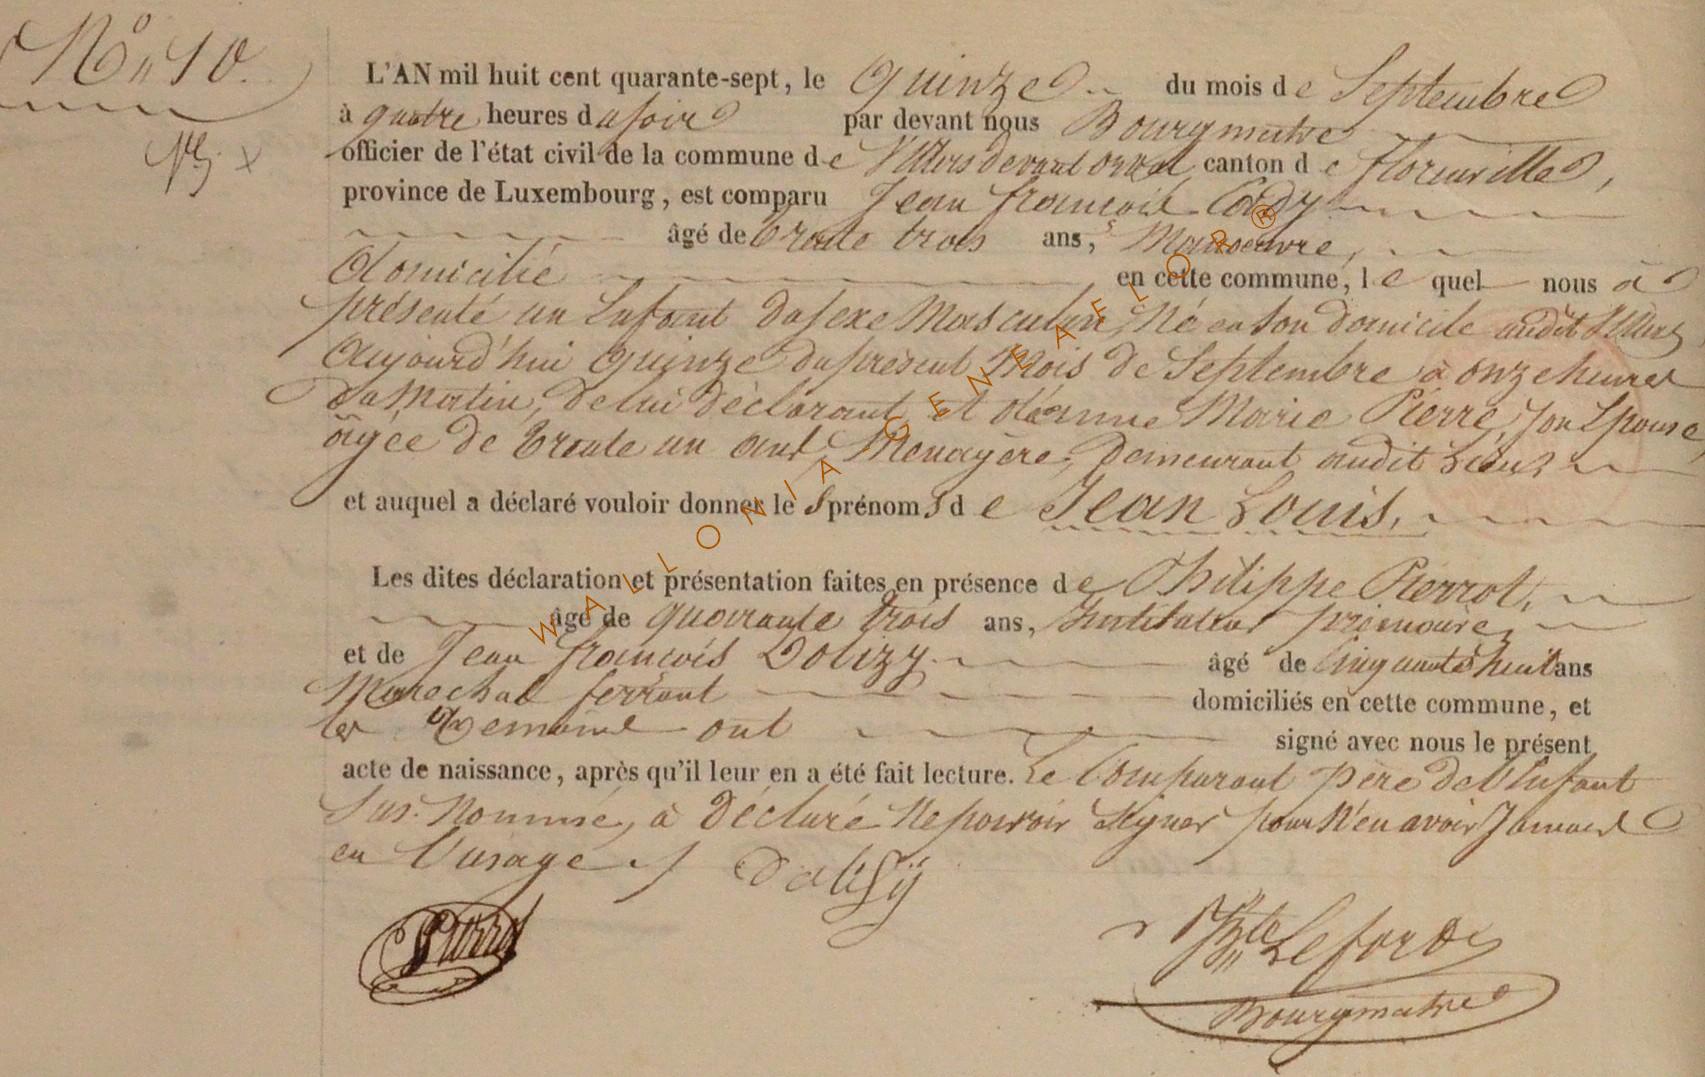 N° 10.
L'AN mil huit cent quarante-sept, le Quinze du mois de Septembre
à quatre heures du soir par devant nous Bourgmatre
officier de l'état civil de la commune de Villers devant orval, canton de florenville,
province de Luxembourg, est comparu Jean françois
âgé de trente trois ans, Manoeuvre,
domicilié en cette commune, lequel nous à
présenté un Enfant du sexe Masculin, Né en son domicile audit Villers
aujourd'hui quinze du présent Mois de Septembre à onze heures
du Matin, de lui déclarant et d'anne Marie Pierre, son Epouse,
agée de trente un ans, Menagère, Demeurant audit Lieu,
et auquel a déclaré vouloir donner les prénoms de Jean Louis,
Les dites déclaration et présentation faites en présence de Philippe Pierrot,
âgé de quarante trois ans, Instituteur primaire,
et de Jean françois Douzy âgé de Cinquante huit ans
Marechal ferrant domiciliés en cette commune, et
les Temoins ont signé avec nous le présent
acte de naissance, après qu'il leur en a été fait lecture. Le Comparant père de l'Enfant
Sus-Nommé, à Déclaré Ne pouvoir signer pour N'en avoir Jamais
en l'usage.
Pierrot
Lefort
Bourgmatre
WALLONIA GENEALOR®